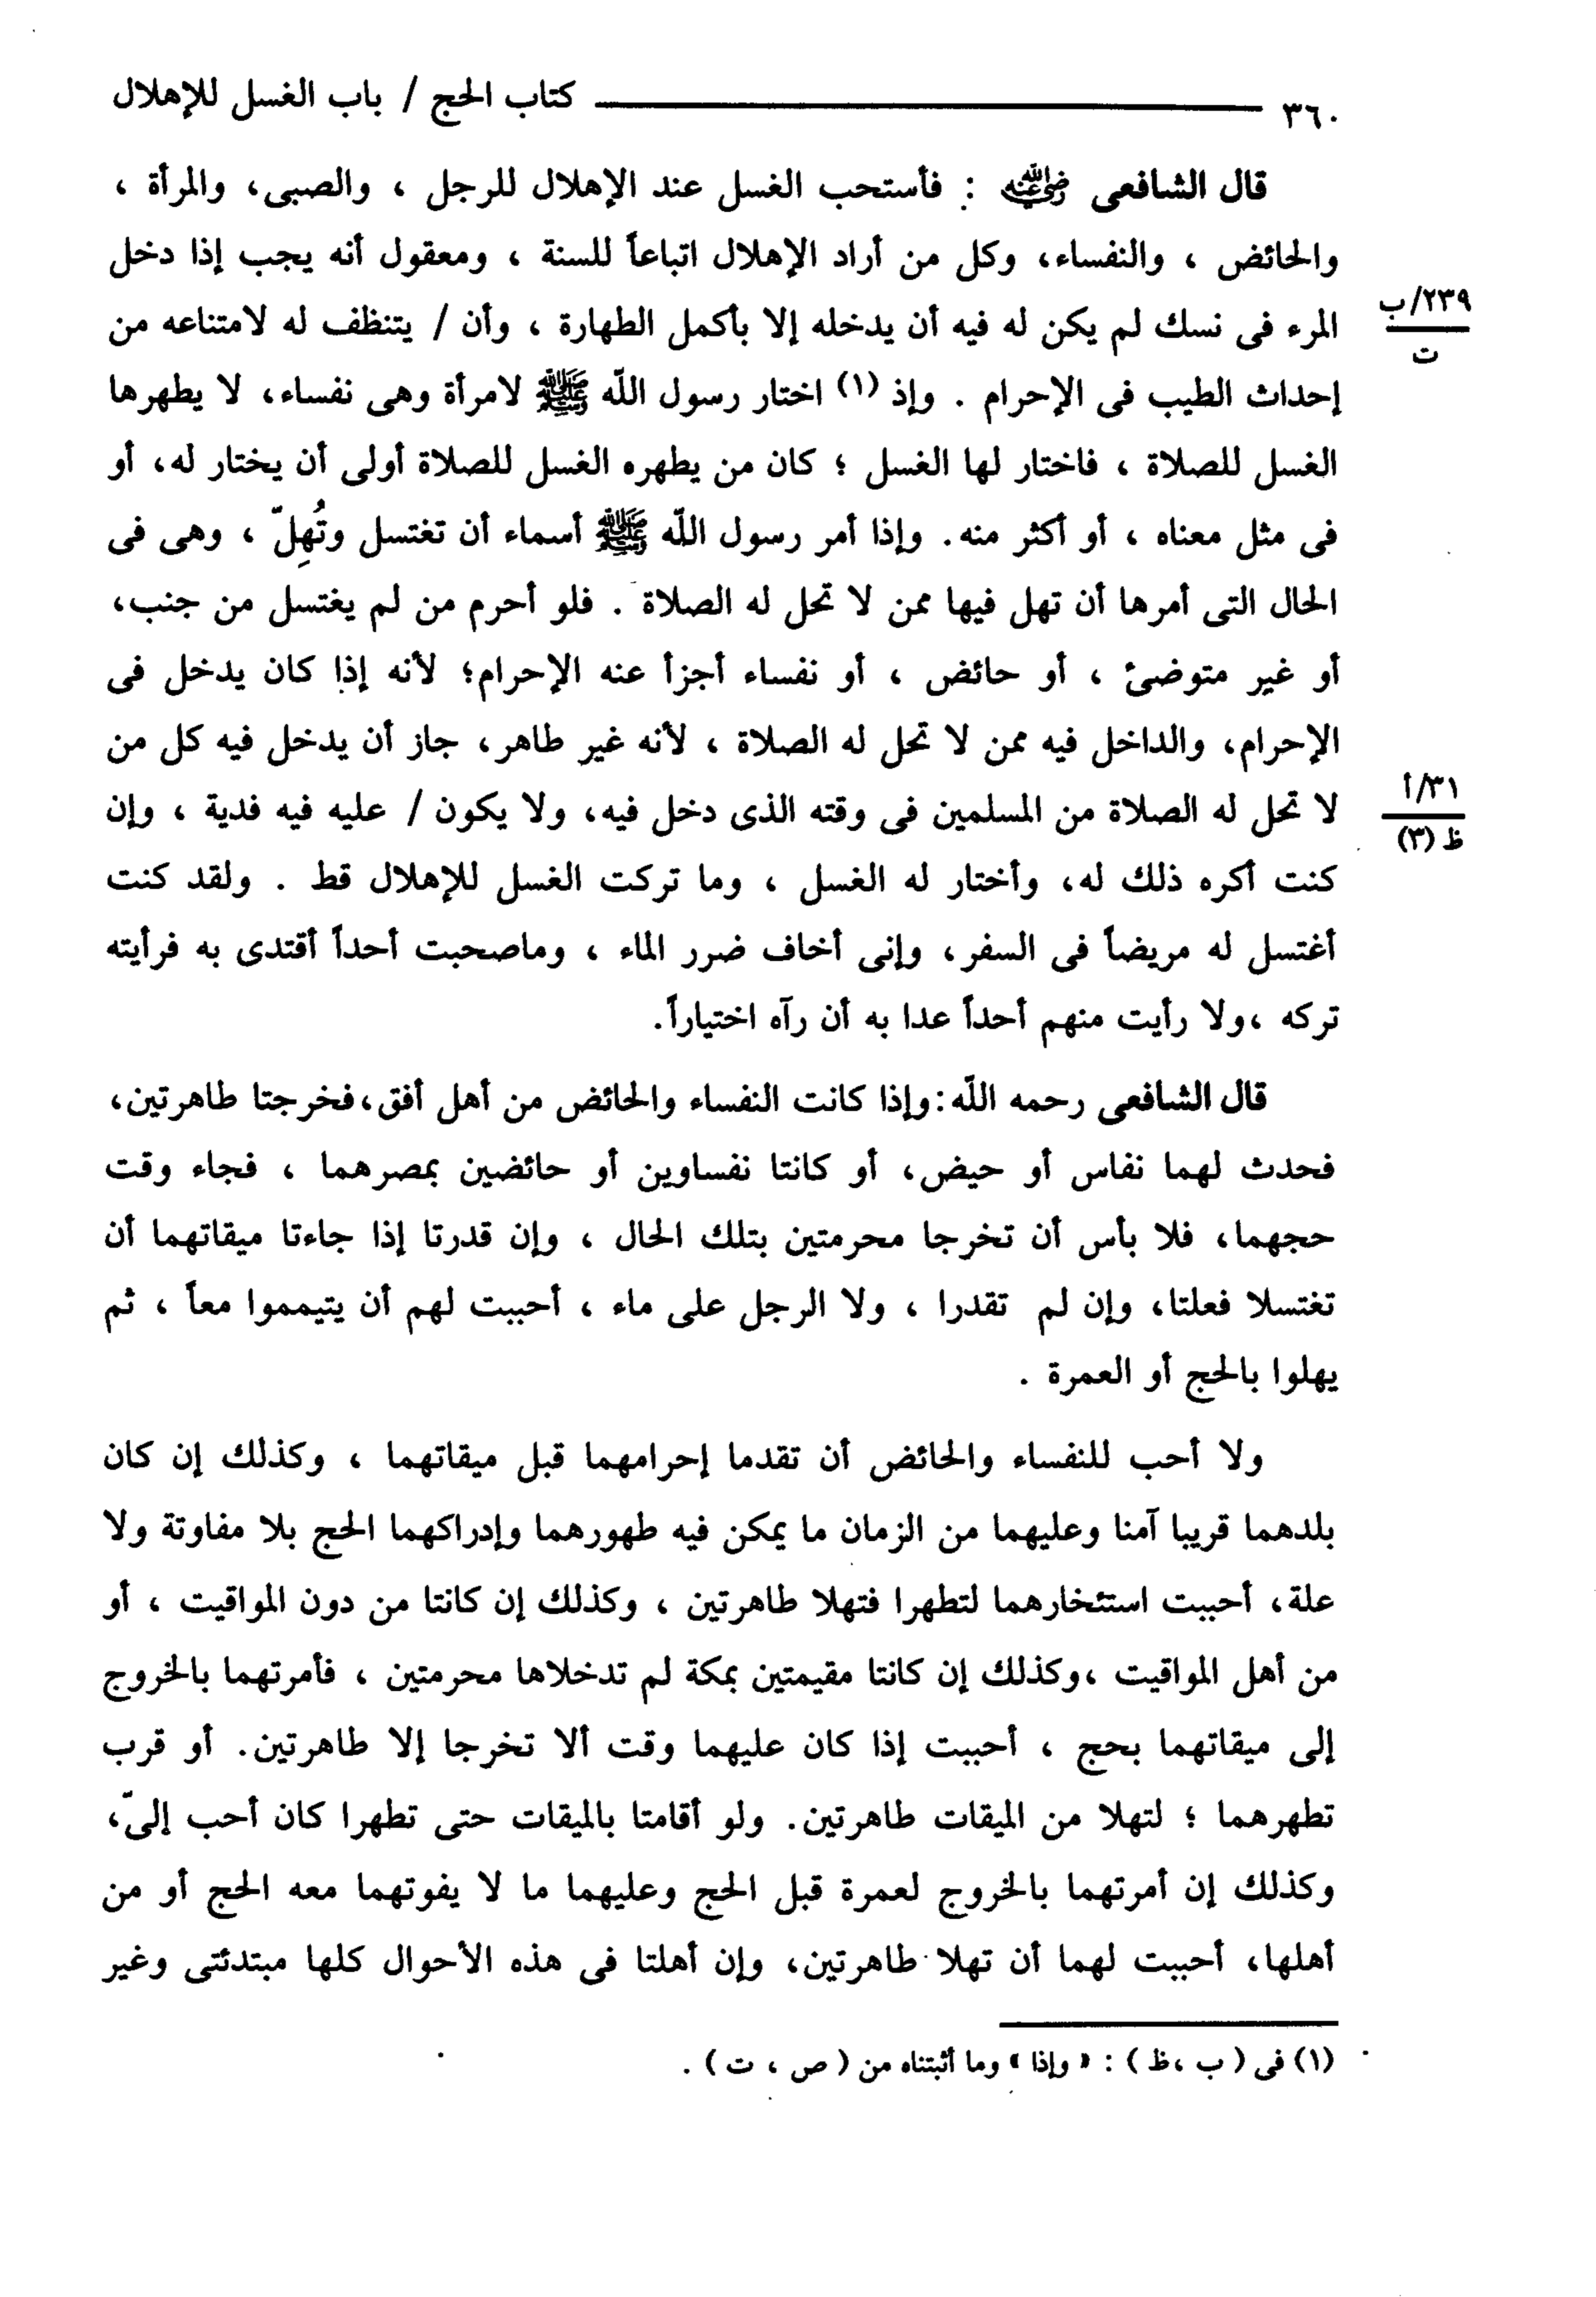 ٣٦٠ كتاب الحج / باب الغسل للإهلال
قال الشافعى رضي الله عنه : فأستحب الغسل عند الإهلال للرجل ، والصبى، والمرأة ،
والحائض ، والنفساء، وكل من أراد الإهلال اتباعاً للسنة ، ومعقول أنه يجب إذا دخل
المرء فى نسك لم يكن له فيه أن يدخله إلا بأكمل الطهارة ، وأن / يتنظف له لامتناعه من
٢٣٩/ب
ت
إحداث الطيب فى الإحرام . وإذ (١) اختار رسول اللّه ﷺ لامرأة وهى نفساء، لا يطهرها
الغسل للصلاة ، فاختار لها الغسل ؛ كان من يطهره الغسل للصلاة أولى أن يختار له، أو
فى مثل معناه ، أو أكثر منه. وإذا أمر رسول اللّه ﷺ أسماء أن تغتسل وتُهِلّ ، وهى فى
الحال التى أمرها أن تهل فيها ممن لا تحل له الصلاة . فلو أحرم من لم يغتسل من جنب،
أو غير متوضئ ، أو حائض ، أو نفساء أجزأ عنه الإحرام؛ لأنه إذا كان يدخل فى
الإحرام، والداخل فيه ممن لا تحل له الصلاة ، لأنه غير طاهر، جاز أن يدخل فيه كل من
لا تحل له الصلاة من المسلمين فى وقته الذى دخل فيه، ولا يكون / عليه فيه فدية ، وإن
٣١/أ
ظ (٣)
كنت أكره ذلك له، وأختار له الغسل ، وما تركت الغسل للإهلال قط . ولقد كنت
أغتسل له مريضاً فى السفر، وإنى أخاف ضرر الماء ، وماصحبت أحداً أقتدى به فرأيته
تركه ،ولا رأيت منهم أحداً عدا به أن رآه اختياراً.
قال الشافعى رحمه اللّه:وإذا كانت النفساء والحائض من أهل أفق،فخرجتا طاهرتين،
فحدث لهما نفاس أو حيض، أو كانتا نفساوين أو حائضين بمصرهما ، فجاء وقت
حجهما، فلا بأس أن تخرجا محرمتين بتلك الحال ، وإن قدرتا إذا جاءتا ميقاتهما أن
تغتسلا فعلتا، وإن لم تقدرا ، ولا الرجل على ماء ، أحببت لهم أن يتيمموا معاً ، ثم
يهلوا بالحج أو العمرة .
ولا أحب للنفساء والحائض أن تقدما إحرامهما قبل ميقاتهما ، وكذلك إن كان
بلدهما قريبا آمنا وعليهما من الزمان ما يمكن فيه طهورهما وإدراكهما الحج بلا مفاوتة ولا
علة، أحببت استئخارهما لتطهرا فتهلا طاهرتين ، وكذلك إن كانتا من دون المواقيت ، أو
من أهل المواقيت ،وكذلك إن كانتا مقيمتين بمكة لم تدخلاها محرمتين ، فأمرتهما بالخروج
إلى ميقاتهما بحج ، أحببت إذا كان عليهما وقت ألا تخرجا إلا طاهرتين. أو قرب
تطهرهما ؛ لتهلا من الميقات طاهرتين. ولو أقامتا بالميقات حتى تطهرا كان أحب إلىّ،
وكذلك إن أمرتهما بالخروج لعمرة قبل الحج وعليهما ما لا يفوتهما معه الحج أو من
أهلها، أحببت لهما أن تهلا طاهرتين، وإن أهلتا فى هذه الأحوال كلها مبتدئتى وغير
(١) فى ( ب ،ظ ) : « وإذا » وما أثبتناه من ( ص ، ت ) .